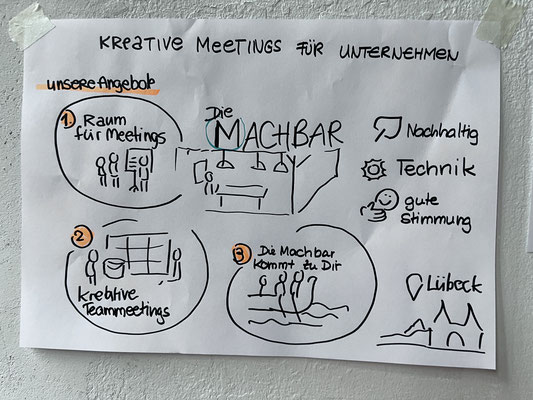 Kreative Meetings für Unternehmen
unsere Angebote
1. Raum
für Meetings
Die
MACHBAR
Nachhaltig
Technik
gute
Stimmung
2
Kreative
Teammeetings
3 Die Machbar
kommt zu Dir
Lübeck